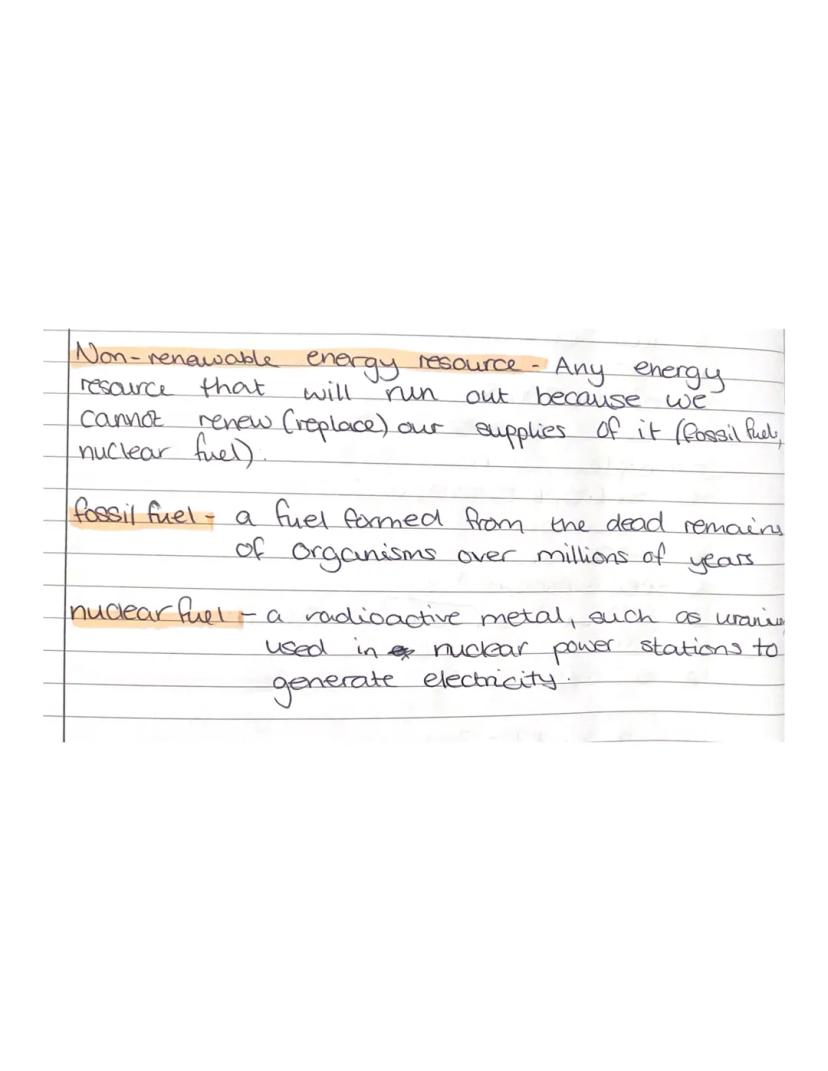 Non-renewable energy resource - Any energy
resource that will run out because we
cannot renew (replace) our supplies of it (fossil fuel,
nuclear fuel).
fossil fuel - a fuel formed from the dead remains
of organisms over millions of years
nuclear fuel - a radioactive metal, such as uraniu
used in nuclear power stations to
generate electricity.